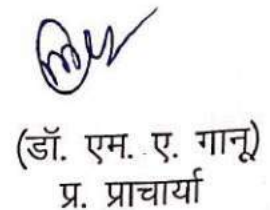 (डॉ. एम. ए. गानू)
प्र. प्राचार्या